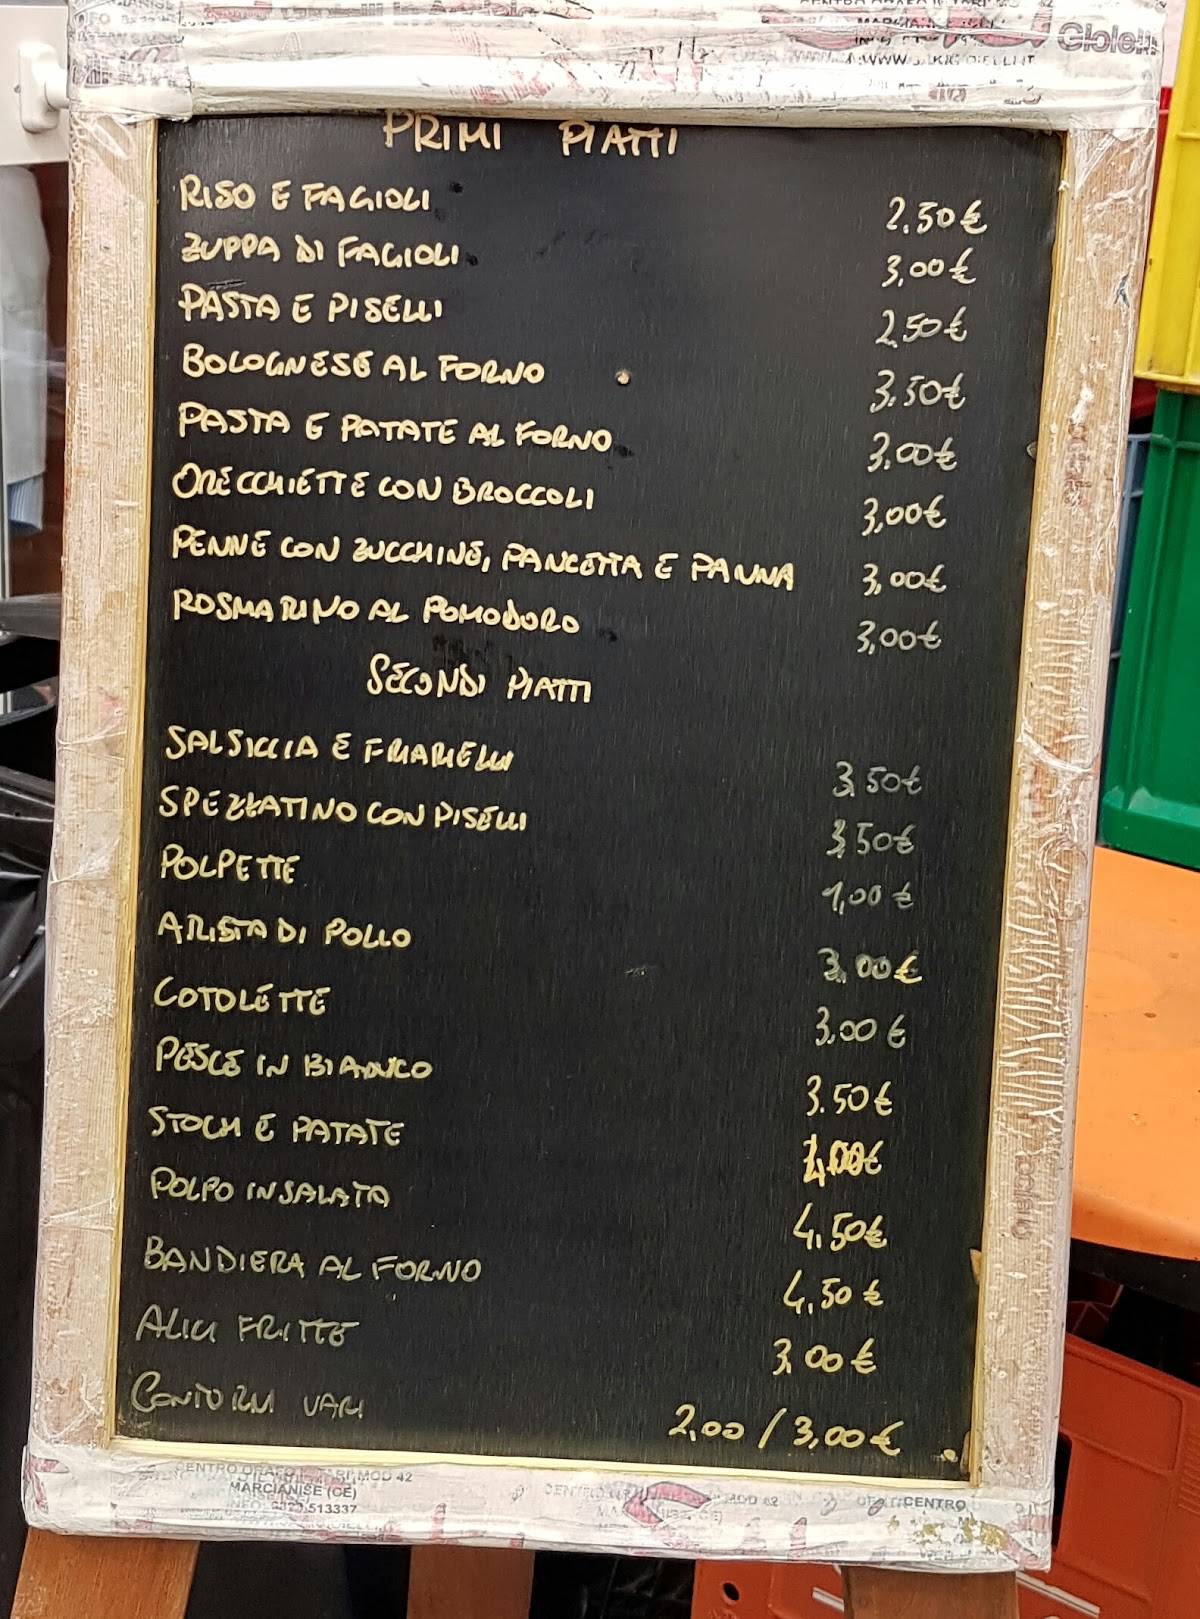 Gioielli
PRIMI PIATTI
RISO E FAGIOLI 2.50€
ZUPPA DI FAGIOLI 3,00€
PASTA E PISELLI 2.50€
BOLOGNESE AL FORNO 3.50€
PASTA E PATATE AL FORNO 3,00€
ORECCHIETTE CON BROCCOLI 3,00€
PENNE CON ZUCCHINE, PANCETTA E PANNA 3,00€
ROSMARINO AL POMODORO 3,00€
SECONDI PIATTI
SALSICCIA E FRIARIELLI 3.50€
SPEZZATINO CON PISELLI 3,50€
POLPETTE 1,00€
ARISTA DI POLLO 3.00€
COTOLETTE 3.00€
PESCE IN BIANCO 3.50€
STOCH E PATATE
POLPO INSALATA 4.50€
BANDIERA AL FORNO 4.50€
ALICI FRITTE 3,00€
CONTORNI VARI 2,00 / 3,00€
CENTRO ORAFO IL TARI' MOD 42
MARCIANISE (CE)
CENTRO